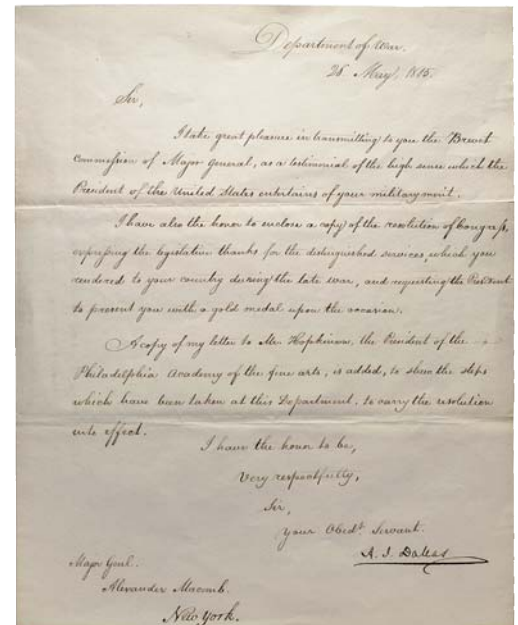 Department of War.
26 May, 1815.
Sir,
I take great pleasure in transmitting to you the Brevet
Commission of Major General, as a testimonial of the high sense which the
President of the United States entertains of your military merit.
I have also the honor to enclose a copy of the resolution of Congress,
expressing the legislative thanks for the distinguished services, which you
rendered to your country during the late war, and requesting the President
to present you with a gold medal upon the occasion.
A copy of my letter to Mr. Hopkinson, the President of the
Philadelphia Academy of the fine arts, is added, to shew the steps
which have been taken at this Department, to carry the resolution
into effect.
I have the honor to be,
Very respectfully,
Sir,
your Obedt. Servant.
A. J. Dallas
Major Genl.
Alexander Macomb.
New York.